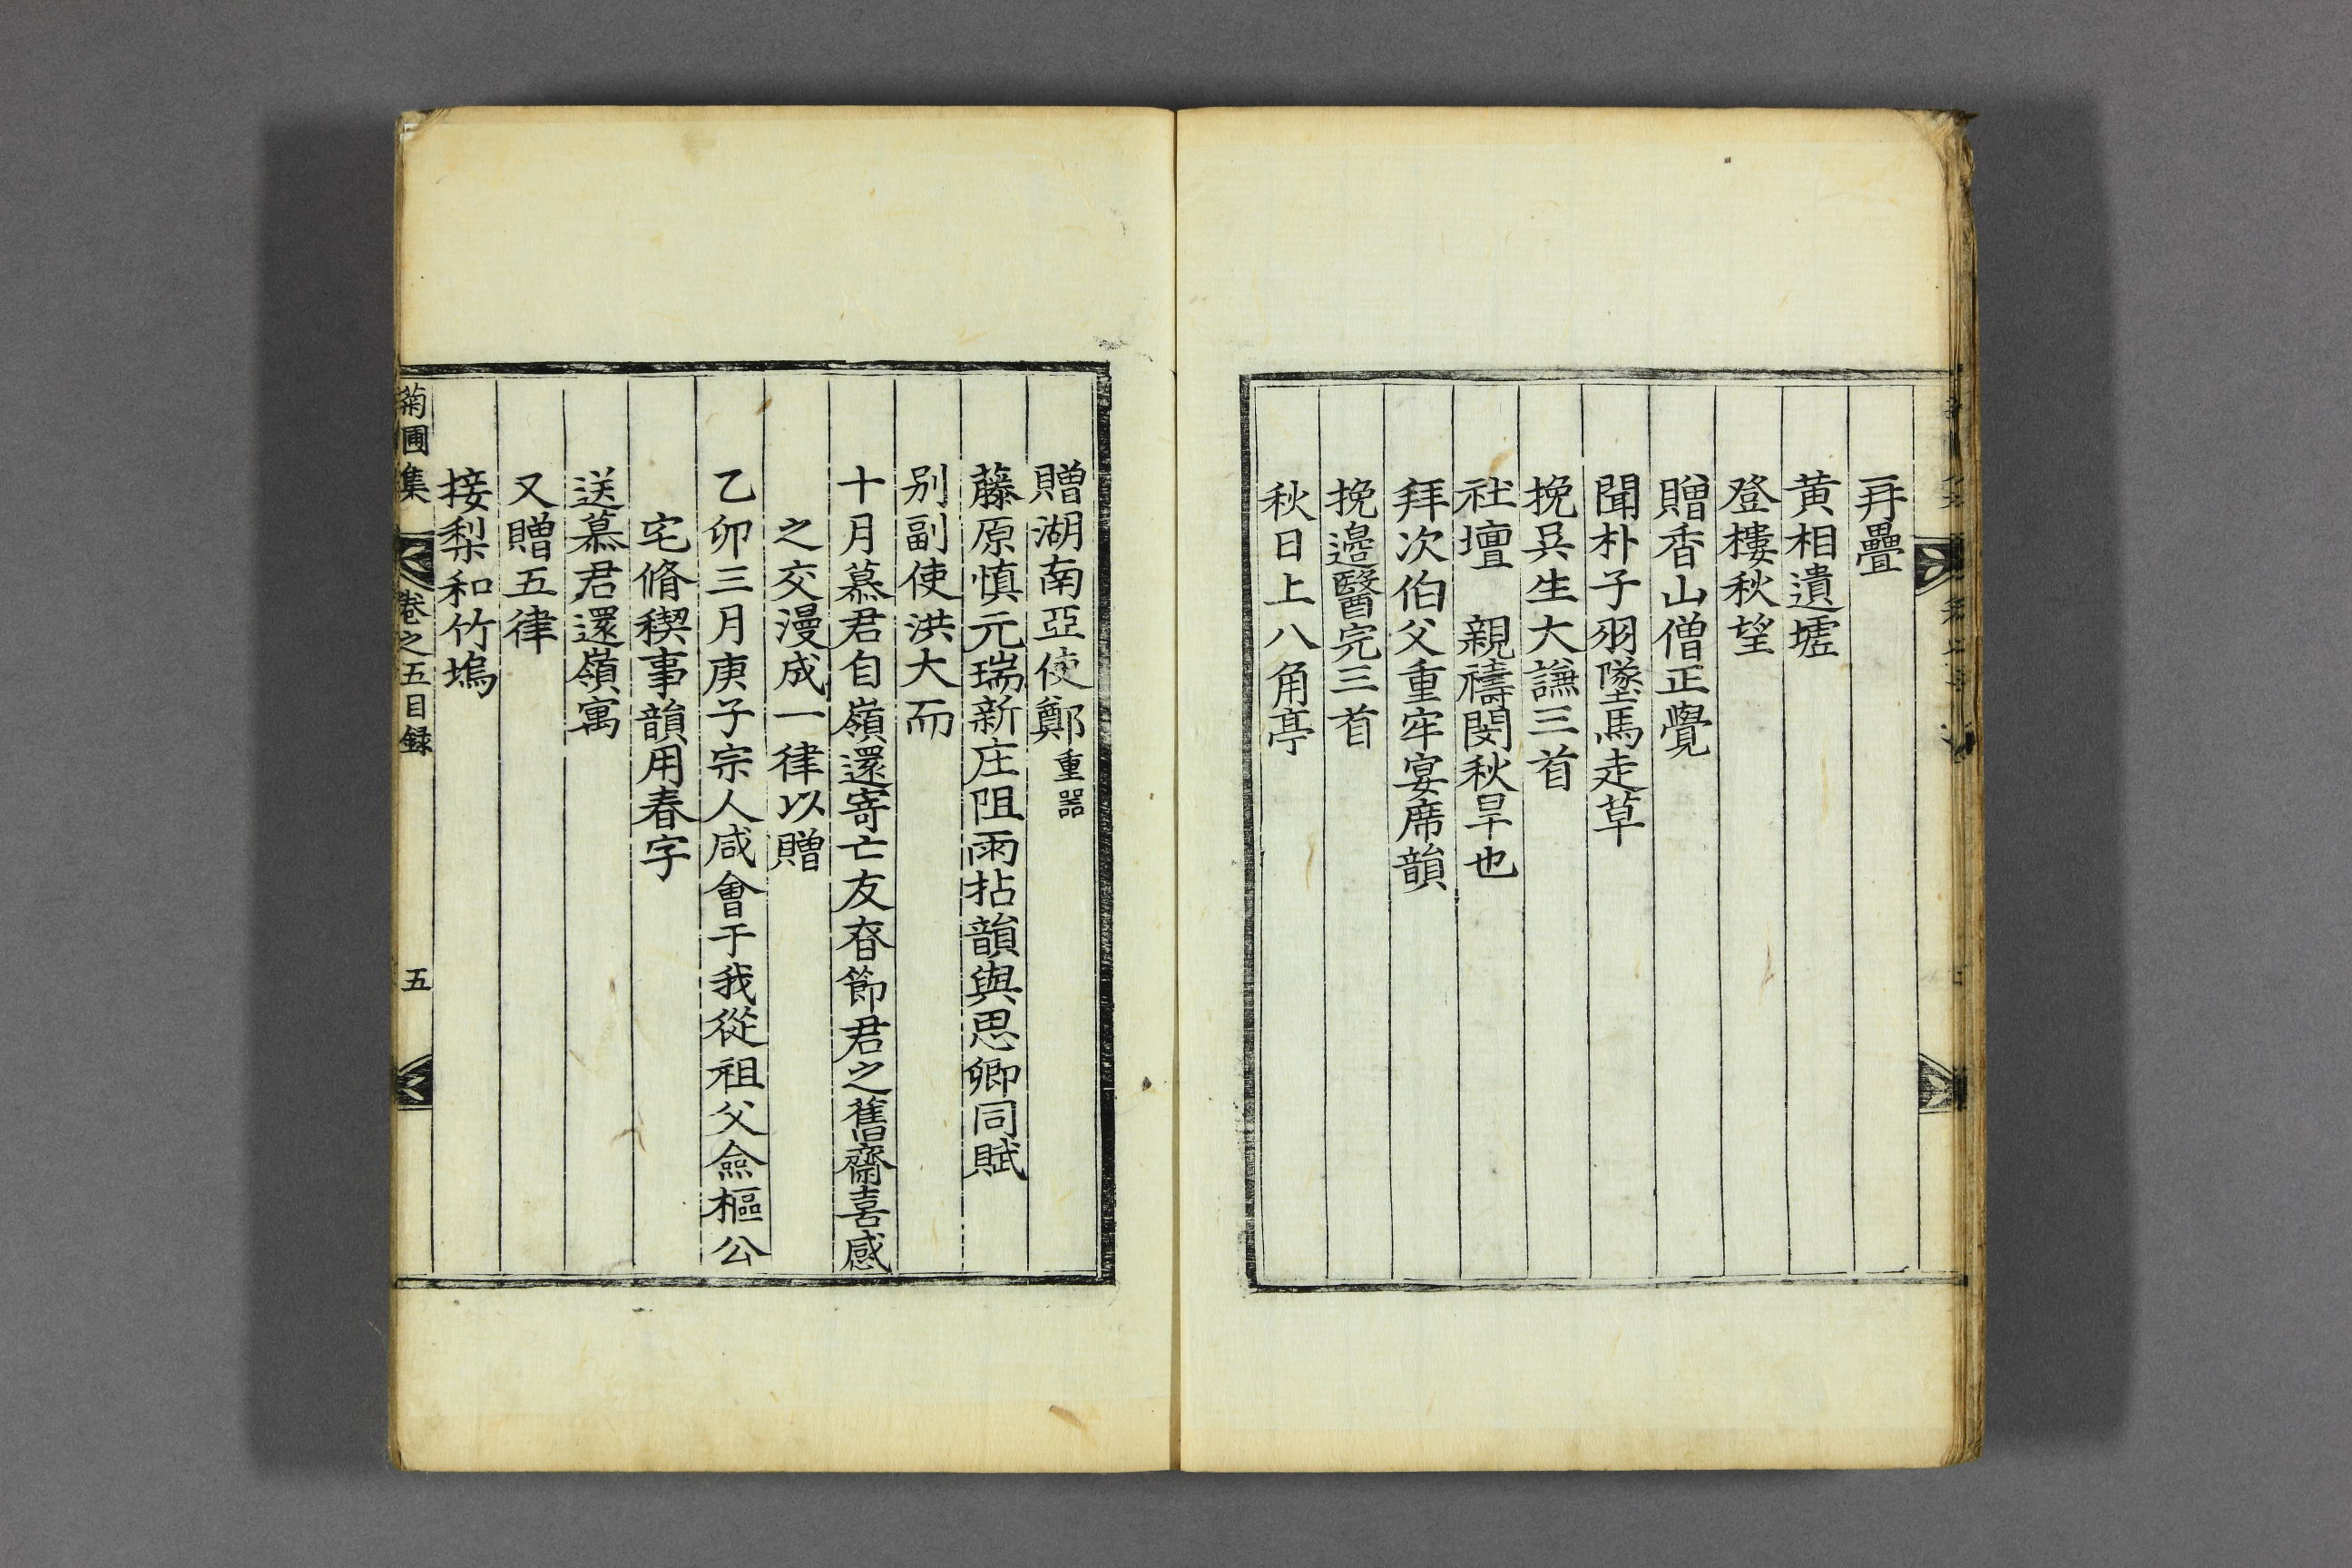 再疊
黄相遺墟
登樓秋望
贈香山僧正覺
聞朴子羽墜馬走草
挽吳生大謙三首
社壇 親禱閔秋旱也
拜次伯父重牢宴席韻
挽邉醫完三首
秋日上八角亭
贈湖南亞使鄭重器
藤原慎元瑞新庄阻雨拈韻與思卿同賦
别副使洪大而
十月慕君自嶺還寄亡友春節君之舊齋喜感
之交漫成一律以贈
乙卯三月庚子宗人咸會于我從祖父僉樞公
宅脩稧事韻用春字
送慕君還嶺寓
又贈五律
接梨和竹塢
菊圃集 卷之五目録 五